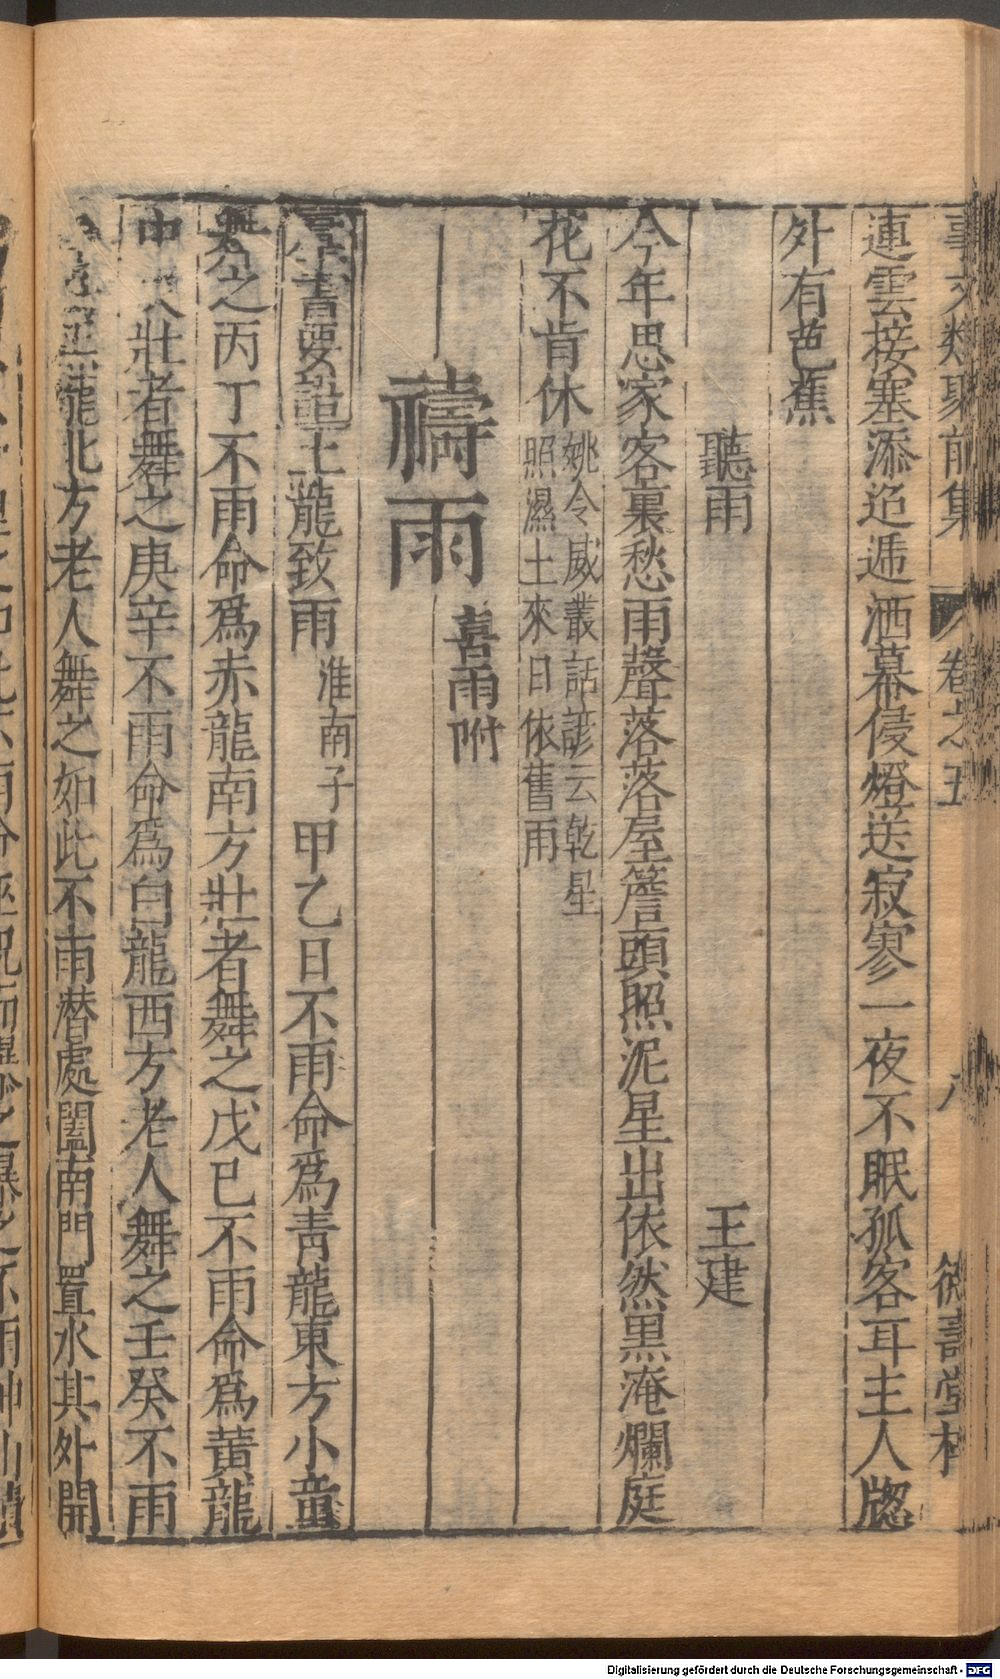 事文類聚前集 卷之五 八
連雲接塞添迢遞洒幕侵燈送寂寥一夜不眠孤客耳主人牕
外有芭蕉
聽雨 王建
今年思家客裏愁雨聲落落屋簷頭照泥星出依然黑淹爛庭
花不肯休姚令威叢話諺云乾星
照濕土來日依舊雨
禱雨 喜雨附
土龍致雨淮南子 甲乙日不雨命爲靑龍東方小童
舞之丙丁不雨命爲赤龍南方壯者舞之戊已不雨命爲黃龍
中央壯者舞之庚辛不雨命爲白龍西方老人舞之壬癸不雨
龍北方老人舞之如此不雨潜處闔南門置水其外開
Digitalisierung gefördert durch die Deutsche Forschungsgemeinschaft - DFG